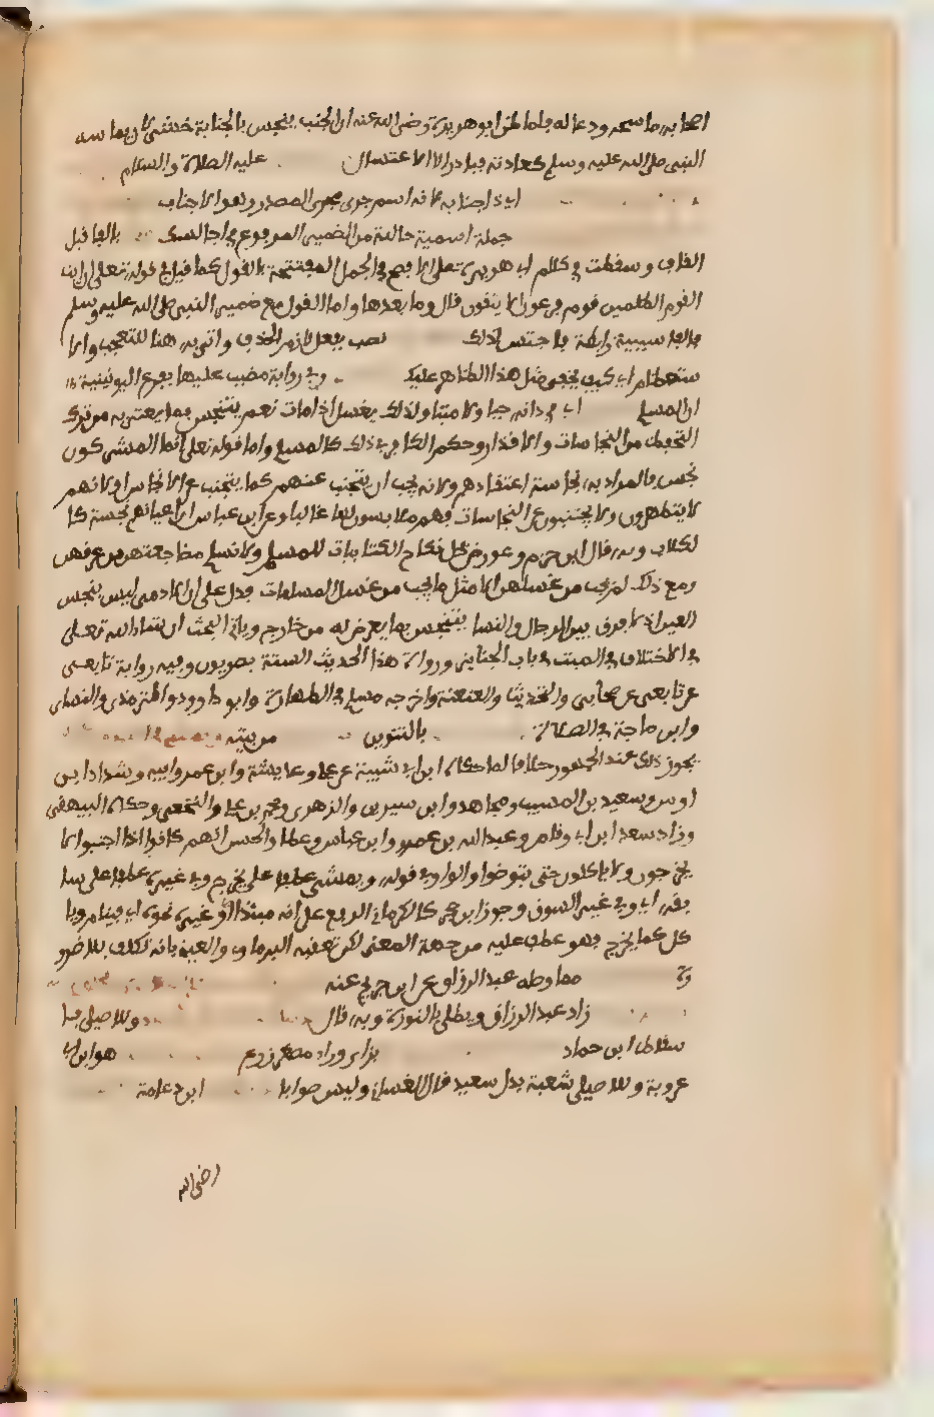 اصحابه ماسحه ودعا له فلما ظن ابو هريرة رضى الله عنه ان الجنب ينجس بالجنابة خشى ان يماسه
النبى صلى الله عليه وسلم كعادته فبادر الى الاغتسال عليه الصلاة والسلام
اى ذا جنابة لانه اسم جرى مجرى المصدر وهو الاجناب
جملة اسمية حالية من الضمير المرفوع فى اجالسك بالفا قبل
القاف وسقطت فى كلام ابى هريرة على الافصح فى الجمل المفتتحة بالقول كما قيل فى قوله تعلى ان ايت
القوم الظلمين قوم فرعون الا يتقون قال وما بعدها واما القول مع ضمير النبى صلى الله عليه وسلم
فالفا سببية رابطة فاجتنس لذلك نصب بفعل لازم الحذف واتى به هنا للتعجب والا
ستعظام اى كيف يخفى مثل هذا الظاهر عليك وفى رواية مضبب عليها بفرع اليونينية
ان المسلم اى فى ذاته حيا ولا ميتا ولذلك يغسل اذا مات نعم يتنجس بما يعتريه من ترك
التحفظ من النجاسات والاقذار وحكم الكافر فى ذلك كالمسلم واما قوله تعلى انما المشركون
نجس فالمراد به نجاسة اعتقادهم ولانه يجب ان يتجنب عنهم كما يتجنب عن الانجاس او لانهم
لا يتطهرون ولا يجتنبون عن النجاسات فهم ملابسون لها غالبا وعن ابن عباس ان اعيانهم نجسة كا
لكلاب وبه قال ابن حزم وعورض بحل نكاح الكتابيات للمسلم ولا تسلم مضاجعتهن من عرقهن
ومع ذلك لم يجب من غسلهن الا مثل ما يجب من غسل المسلمات فدل على ان الادمى ليس بنجس
العين اذ لا فرق بين الرجال والنسا بل يتنجس بما يعرض له من خارج وياتى البحث ان شاء الله تعلى
فى الاختلاف فى الميت فى باب الجنايز ورواة هذا الحديث الستة بصريون وفيه رواية تابعى
عن تابعى عن صحابى والتحديث والعنعنة واخرجه مسلم فى الطهارة وابو داوود والترمذى والنساى
وابن ماجة فى الصلاة بالتنوين من بيته
يجوز ذلك عند الجمهور خلافا لما حكاه ابن ابى شيبة عن على وعايشة وابن عمر وابيه وشداد ابن
اوس وسعيد بن المسيب ومجاهد وابن سيرين والزهرى ومحمد بن على والنخعى وحكاه البيهقى
وزاد سعد ابن ابى وقاص وعبد الله بن عمرو وابن عباس وعطا والحسن انهم كانوا اذا اجنبوا لا
يخرجون ولا ياكلون حتى يتوضوا والواو فى قوله ويمشى عطف على يخرج وفى غيره عطف على سا
بقه اى وفى غير السوق وجوز ابن حجر كالكرمانى الرفع على انه مبتدا او غيره نحوه اى فينام ويا
كل كما يخرج فهو عطف عليه من جهة المعنى لكن تعقبه البرماوى والعينى بانه تكلف بلا ضرو
رة مما وصله عبد الرزاق عن ابن جريج عنه
زاد عبد الرزاق ويطلى بالنورة وبه قال وللاصيلى
ابن حماد بزاى ورا مصغر زرع هو ابن ابى
عروبة وللاصيلى شعبة بدل سعيد قال الغسانى وليس صوابا ابن دعامة
رضى الله